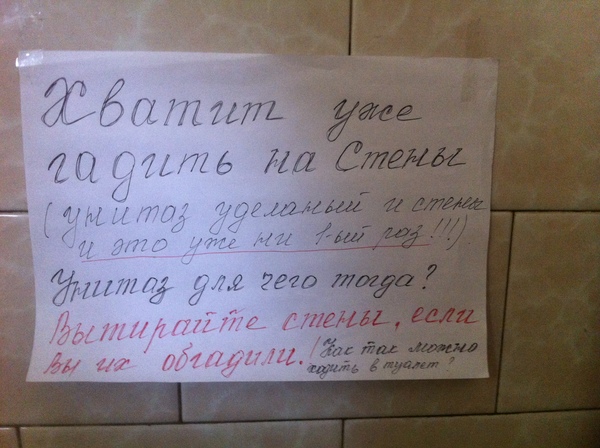 Хватит уже
гадить на Стены
(унитаз уделаный и стены
и это уже ни 1-ый раз!!!)
Унитаз для чего тогда?
Вытирайте стены, если
вы их обгадили! Как так можно
ходить в туалет?